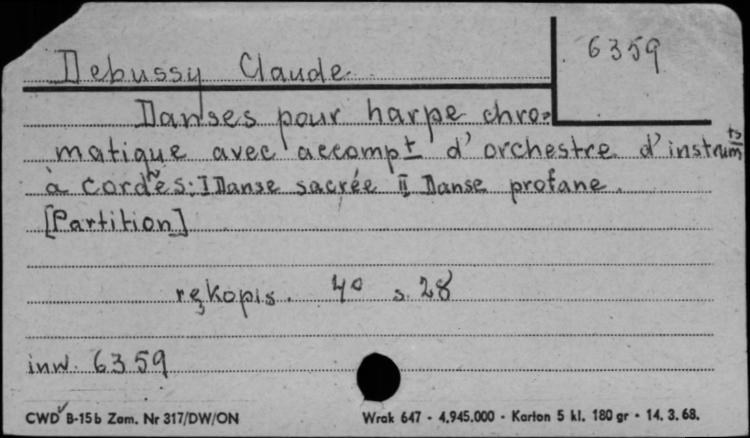 6359
Debussy Claude
Danses pour harpe chro=
matique avec accompt d' orchestre d' instrumts
à cordes: I Danse sacrée II Danse profane.
[Partition]
rękopis. 4° s. 28
inw. 6359
CWD B-15b Zam. Nr 317/DW/ON Wrak 647 - 4.945.000 - Karton 5 kl. 180 gr - 14. 3. 68.